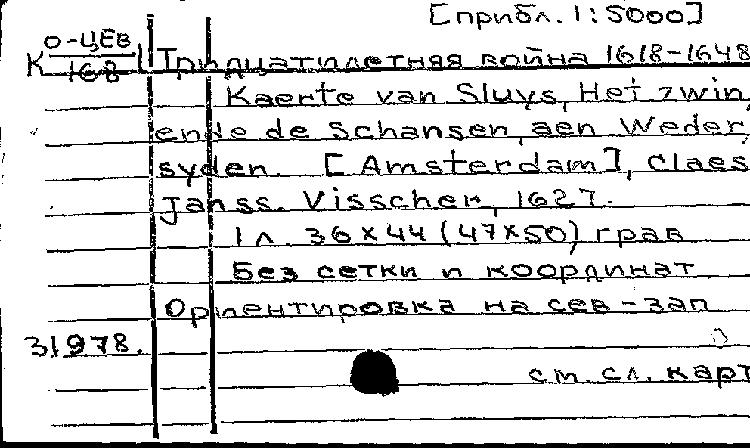 [прибл. 1:5000]
К О-ЦЕВ
168
Тридцатилетняя война 1618-1648
Kaerte van Sluys, Het zwin,
ende de Schansen, aen Weder
syden. [Amsterdam], Claes
Janss. Visscher, 1627.
1 л. 36×44 (47×50) грав
Без сетки и координат
Ориентировка на сев-зап
31978.
см. сл. карт